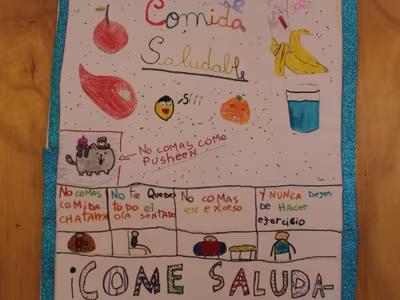 Comida
Saludable
Siii
No comas como
Pusheen
No comas
comida
chatarra
No te Quedes
todo el
día sentado
No comas
en exceso
Y nunca dejes
de Hacer
ejercicio
¡COME SALUDA-